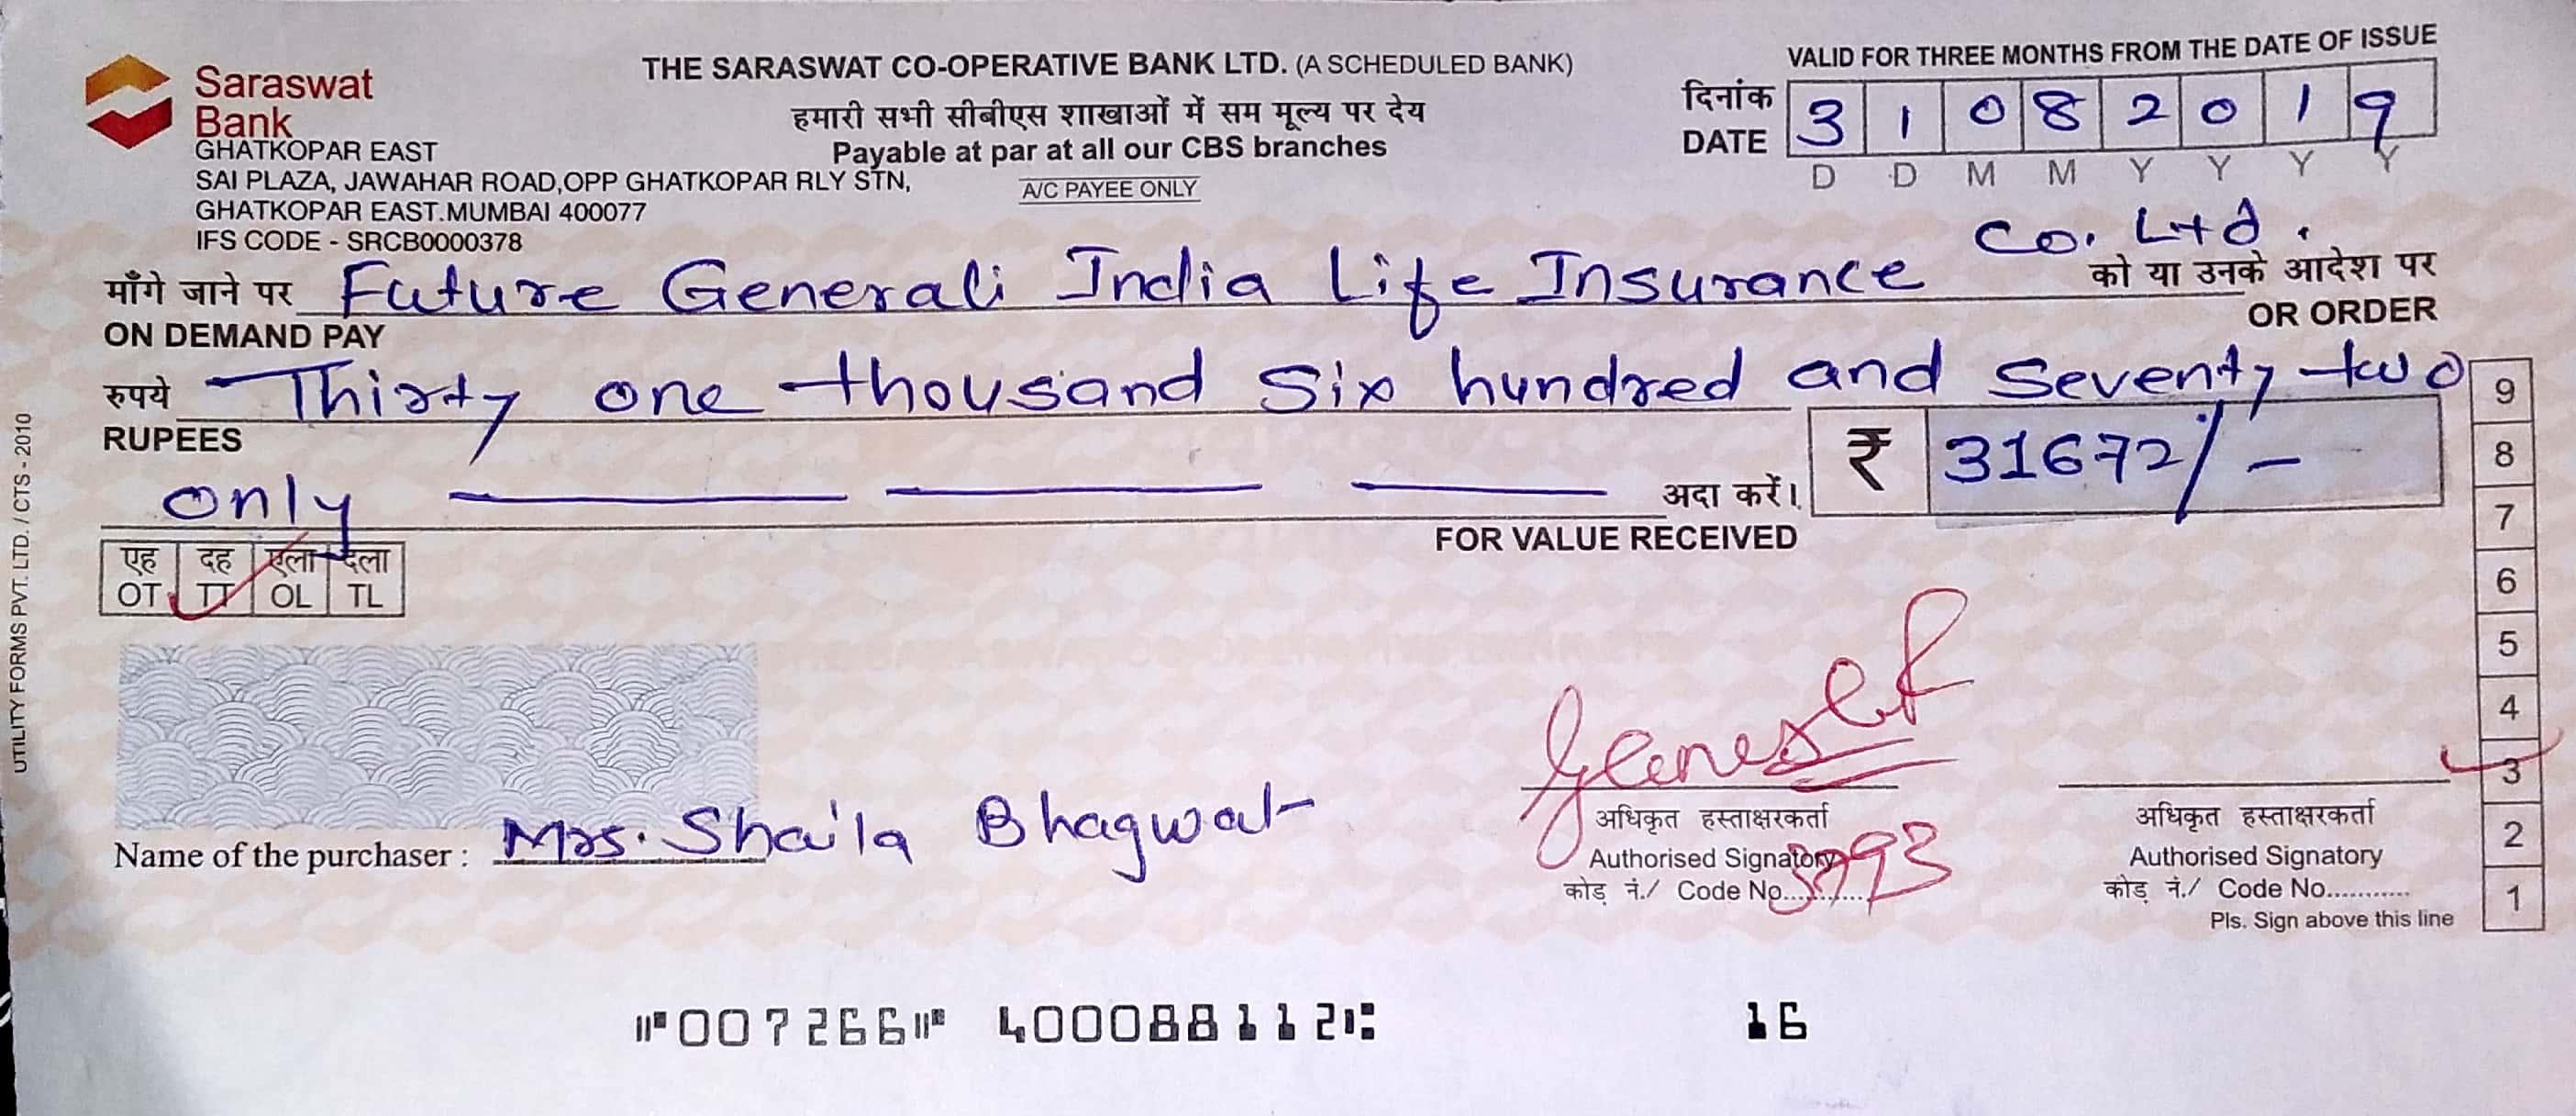 Saraswat
Bank
GHATKOPAR EAST
SAI PLAZA, JAWAHAR ROAD,OPP GHATKOPAR RLY STN,
GHATKOPAR EAST.MUMBAI 400077
IFS CODE - SRCB0000378
THE SARASWAT CO-OPERATIVE BANK LTD. (A SCHEDULED BANK)
हमारी सभी सीबीएस शाखाओं में सम मूल्य पर देय
Payable at par at all our CBS branches
A/C PAYEE ONLY
VALID FOR THREE MONTHS FROM THE DATE OF ISSUE
दिनांक
DATE 3 1 0 8 2 0 1 9
D D M M Y Y Y Y
माँगे जाने पर Future Generali India Life Insurance Co. Ltd. को या उनके आदेश पर
ON DEMAND PAY OR ORDER
रुपये Thirty one thousand six hundred and seventy two
RUPEES
only अदा करें। ₹ 31672/-
FOR VALUE RECEIVED
एह दह एला दला
OT TT OL TL
9
8
7
6
5
4
3
2
1
Name of the purchaser : Mrs. Shaila Bhagwat
अधिकृत हस्ताक्षरकर्ता
Authorised Signatory
कोड़ नं./ Code No...........
अधिकृत हस्ताक्षरकर्ता
Authorised Signatory
कोड़ नं./ Code No............
Pls. Sign above this line
UTILITY FORMS PVT. LTD. / CTS - 2010
⑈007266⑈ 400088112⑆ 16